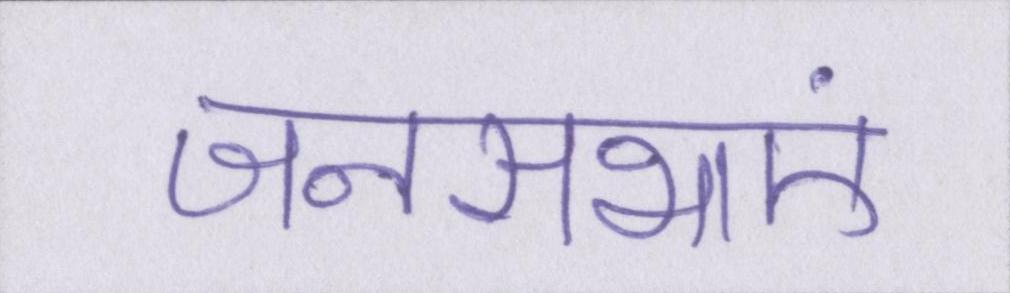 जनसभाएं